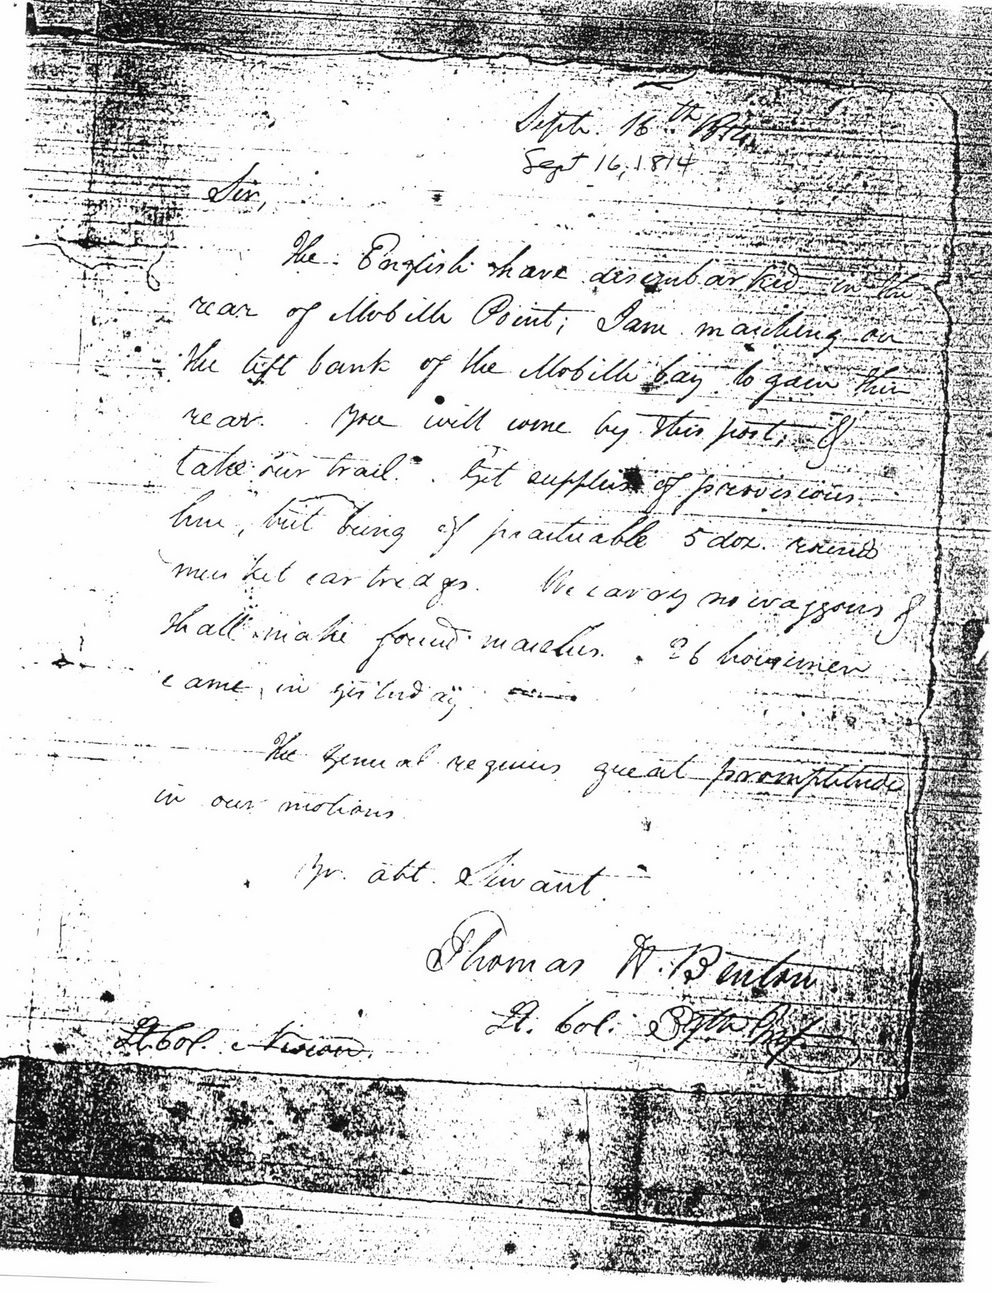 Septr. 16th 1814.
Sept 16, 1814
Sir,
The English have disembarked in the
rear of Mobille Point; I am marching on
the left bank of the Mobille bay to gain their
rear. You will come by this post, &
take our trail. Get supplies of provisions
here, but bring if practicable 5 doz. rounds
musket cartredges. We carry no waggons &
shall make forced marches. 26 horsemen
came in yesterday.
The General requires great promptitude
in our motions
Yr. obt. Servant.
Thomas H. Benton
Lt. Col. 39th Inf.
Lt. Col. Nixon.